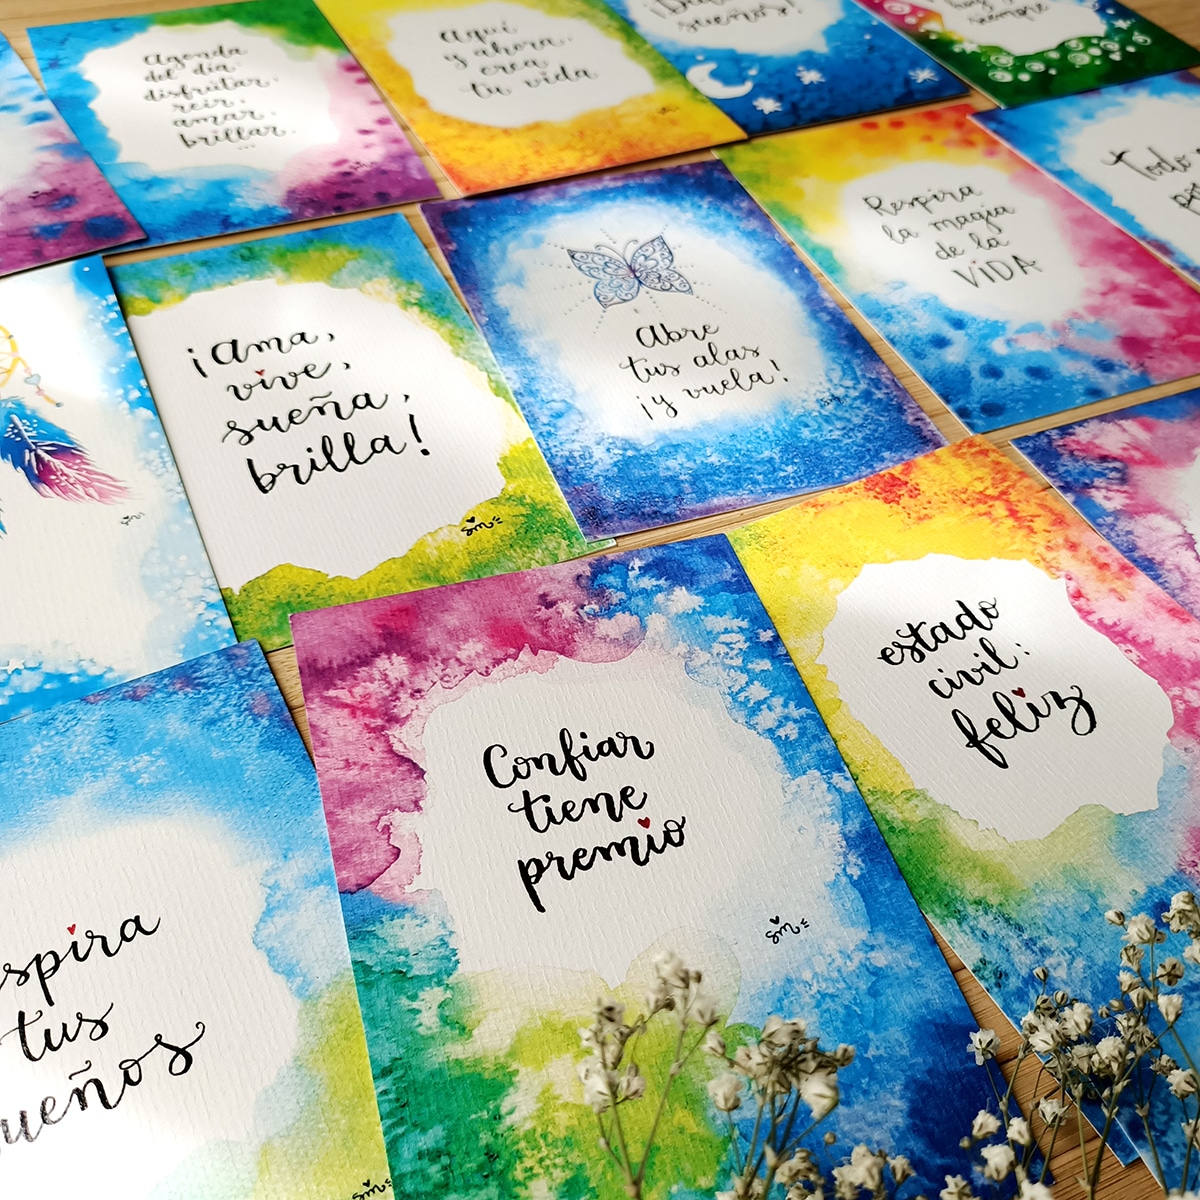 Agenda
del día:
disfrutar,
reír,
amar,
brillar.
...
Aquí
y ahora,
crea
tu vida
sueños!
siempre
¡Ama,
vive,
sueña,
brilla!
sm
Abre
tus alas
¡y vuela!
Respira
la magia
de la
VIDA
Confiar
tiene
premio
sm
estado
civil:
feliz
tus
sm